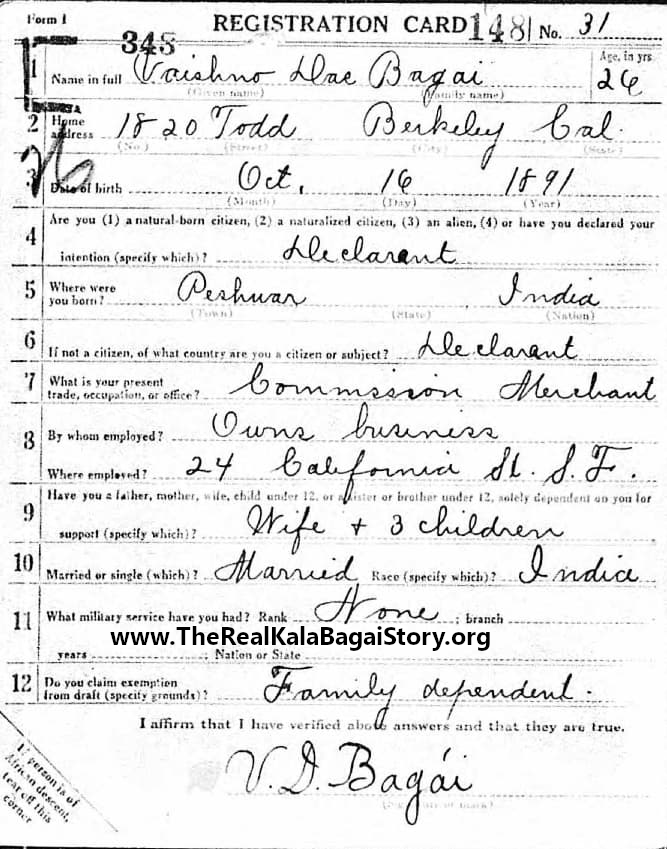 Form 1 REGISTRATION CARD 1481 No. 31
345
1 Name in full Vaishno Das Bagai Age, in yrs 26
(Given name) (Family name)
2 Home address 1820 Todd Berkeley Cal.
(No.) (Street) (City) (State)
3 Date of birth Oct. 16 1891
(Month) (Day) (Year)
4 Are you (1) a natural-born citizen, (2) a naturalized citizen, (3) an alien, (4) or have you declared your
intention (specify which)? Declarant
5 Where were you born? Peshwar India
(Town) (State) (Nation)
6 If not a citizen, of what country are you a citizen or subject? Declarant
7 What is your present trade, occupation, or office? Commission Merchant
8 By whom employed? Owns business
Where employed? 24 California St. S.F.
9 Have you a father, mother, wife, child under 12, or a sister or brother under 12, solely dependent on you for
support (specify which)? Wife + 3 children
10 Married or single (which)? Married Race (specify which)? India
11 What military service have you had? Rank None ; branch
www.TheRealKalaBagaiStory.org
years ; Nation or State
12 Do you claim exemption from draft (specify grounds)? Family dependent.
I affirm that I have verified above answers and that they are true.
V. D. Bagái
(Signature or mark)
If person is of
African descent,
tear off this
corner